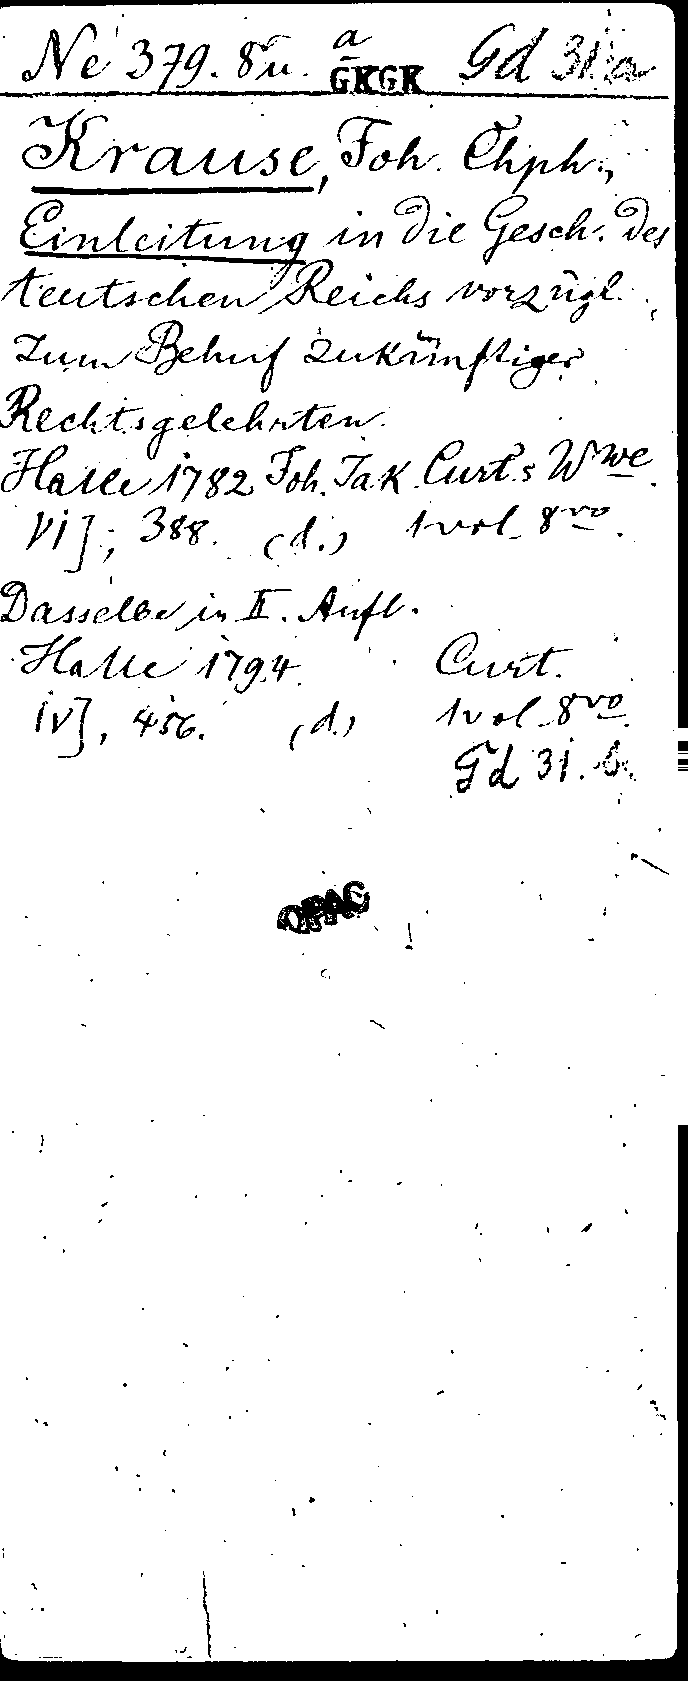 Ne 379. 8 u. a GKGK Gd 31.a
Krause, Joh. Chph.,
Einleitung in die Gesch. des
teutschen Reichs vorzügl.,
zum Behuf zukünftiger
Rechtsgelehrten.
Halle 1782 Joh. Jak. Curt.s Wwe.
VI], 388. (d.) 1 vol. 8vo.
Dasselbe in II. Aufl.
Halle 1794. Curt.
IV], 456. (d.) 1 vol. 8vo.
Gd 31.b.
OPAC